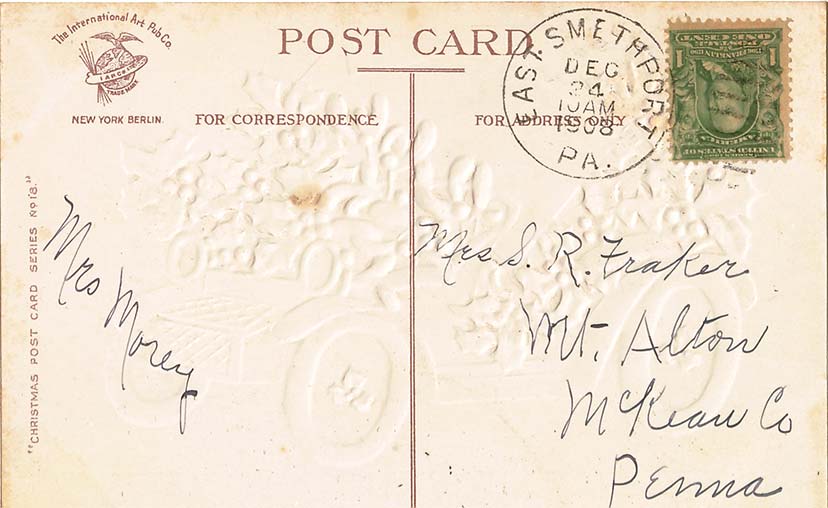 The International Art Pub Co.
I.A.P.CO.
TRADE MARK
NEW YORK BERLIN.
POST CARD
FOR CORRESPONDENCE
FOR ADDRESS ONLY
EAST SMETHPORT
DEC
24
10 AM
1908
PA.
UNITED STATES OF
AMERICA
FRANKLIN
POSTAGE
ONE CENT
1
1
"CHRISTMAS POST CARD SERIES No 18."
Mrs Morey
Mrs S. R. Fraker
Mt. Alton
McKean Co
Penna